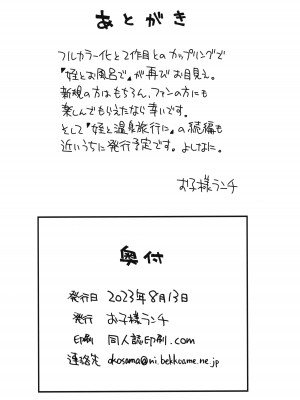 あとがき
フルカラー化と2作目とのカップリングで
『姪とお風呂で』が再びお目見え。
新規の方はもちろん、ファンの方にも
楽しんでもらえたなら幸いです。
そして『姪と温泉旅行に』の続編も
近いうちに発行予定です。よしなに。
お子様ランチ
奥付
発行日 2023年8月13日
発行 お子様ランチ
印刷 同人誌印刷.com
連絡先 okosama@ni.bekkoame.ne.jp